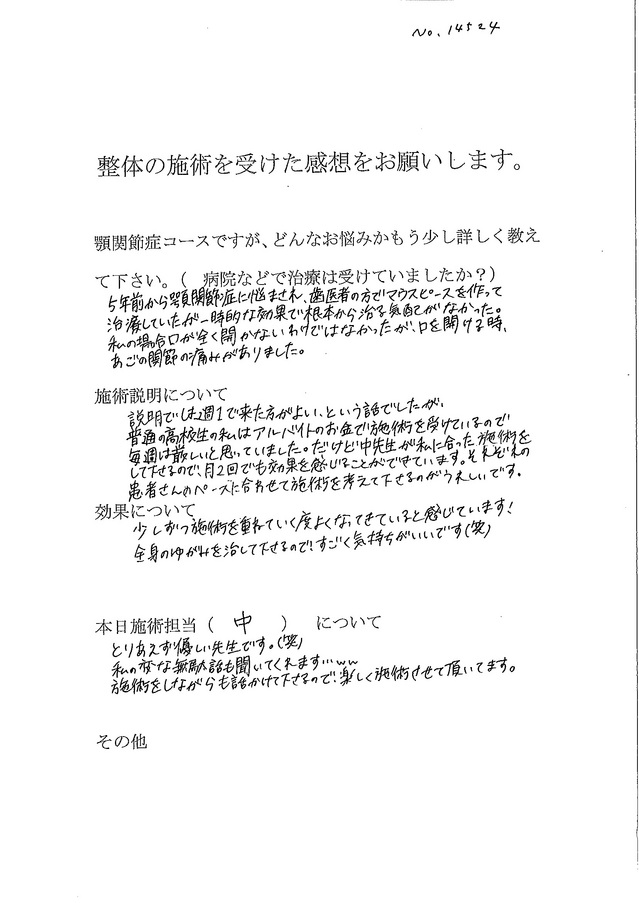 No. 14524
整体の施術を受けた感想をお願いします。
顎関節症コースですが、どんなお悩みかもう少し詳しく教え
て下さい。( 病院などで治療は受けていましたか?)
5年前から顎関節症に悩まされ、歯医者の方でマウスピースを作って
治療していたが一時的な効果で根本から治る気配がなかった。
私の場合口が全く開かないわけではなかったが、口を開ける時、
あごの関節の痛みがありました。
施術説明について
説明では週1で来た方がよい、という話でしたが、
普通の高校生の私はアルバイトのお金で施術を受けているので
毎週は厳しいと思っていました。だけど中先生が私に合った施術を
して下さるので、月2回でも効果を感じることができています。それぞれの
患者さんのペースに合わせて施術を考えて下さるのがうれしいです。
効果について
少しずつ施術を重ねていく度よくなってきていると感じています!
全身のゆがみを治して下さるので!すごく気持ちがいいです(笑)
本日施術担当 ( 中 ) について
とりあえず優しい先生です。(笑)
私の変な無駄話も聞いてくれます…ww
施術をしながらも話かけて下さるので、楽しく施術させて頂いてます。
その他